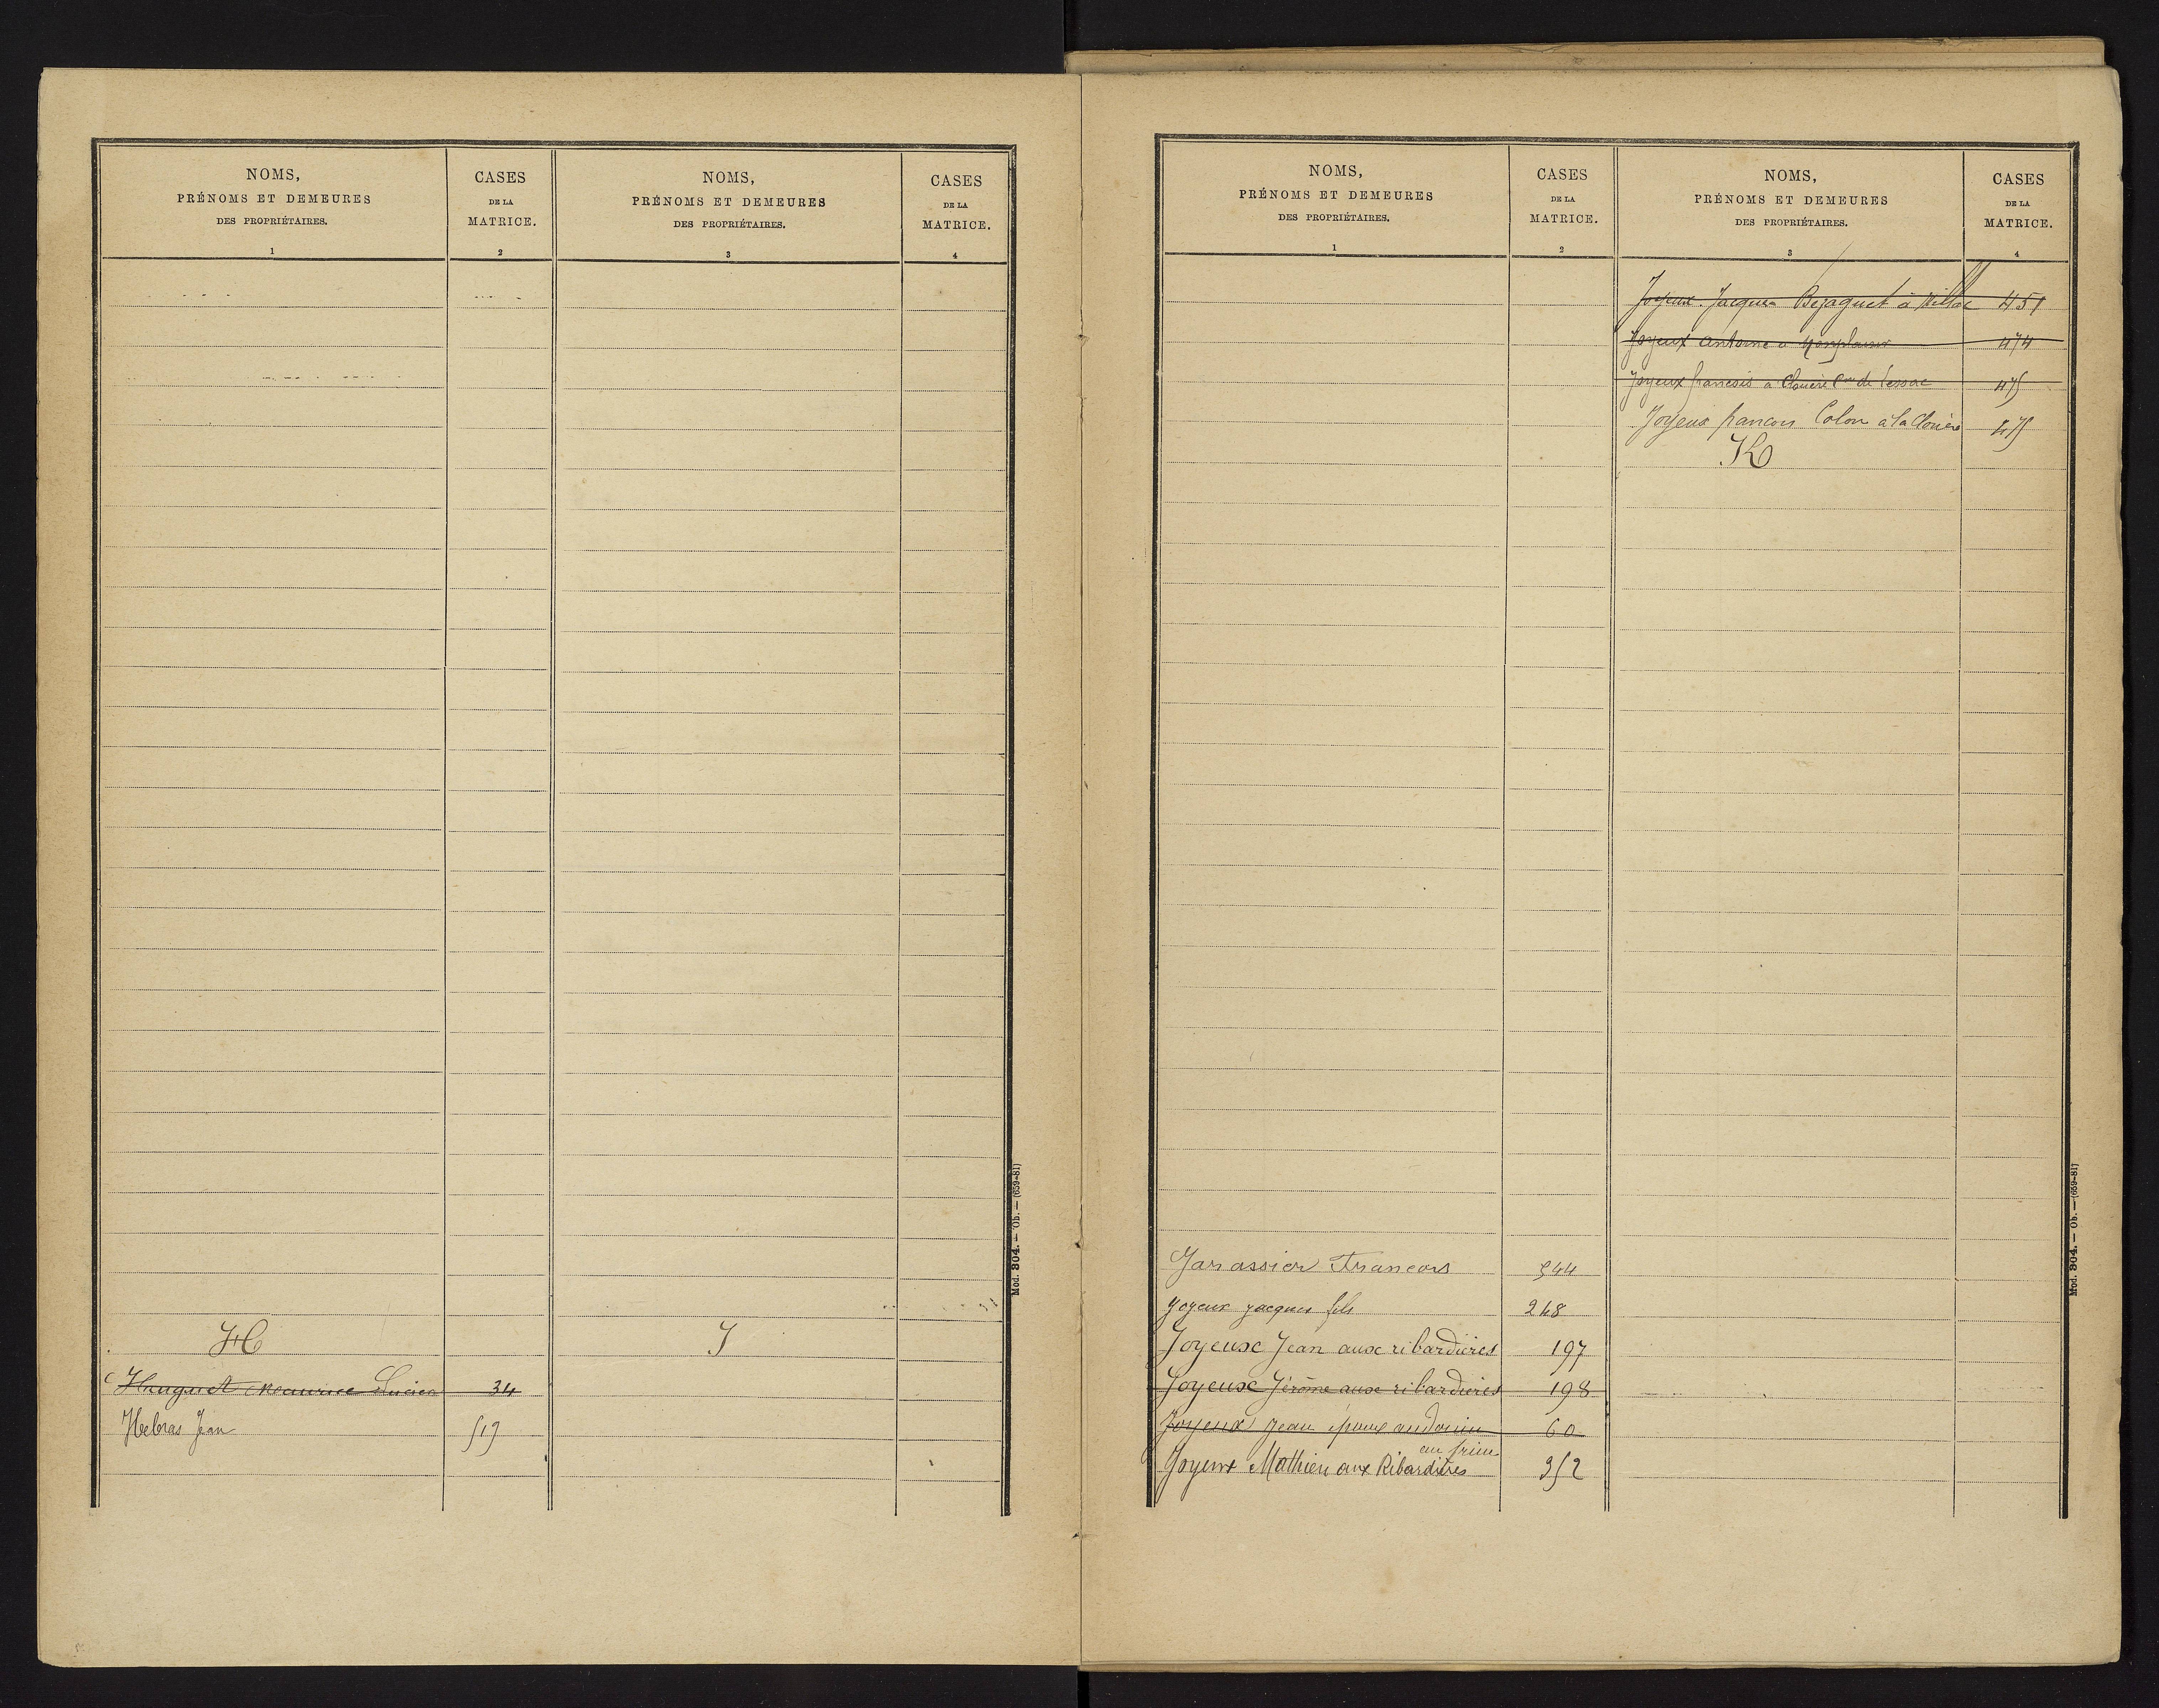 NOMS,
PRÉNOMS ET DEMEURES
DES PROPRIÉTAIRES.
1
CASES
DE LA
MATRICE.
2
NOMS,
PRÉNOMS ET DEMEURES
DES PROPRIÉTAIRES.
3
CASES
DE LA
MATRICE.
4
H
Huguet Maurice Lucien 34
Hebras Jean 517
J
Mod. 304. — Ob. — (659-81)
NOMS,
PRÉNOMS ET DEMEURES
DES PROPRIÉTAIRES.
1
CASES
DE LA
MATRICE.
2
NOMS,
PRÉNOMS ET DEMEURES
DES PROPRIÉTAIRES.
3
CASES
DE LA
MATRICE.
4
Jarassier Francois 544
Joyeux Jacques fils 248
Joyeux Jean aux ribardières 197
Joyeux Jérôme aux ribardières 198
Joyeux Jean époux audouin 60
au
Joyeux Mathieu aux Ribardières 352
Joyeux Jacques Bezaguet à Millac 451
Joyeux antoine a 474
Joyeux francois a Clouère Cne de Lessac 475
Joyeux francois Colon à la Clouère 475
K
Mod. 304. — Ob. — (659-81)